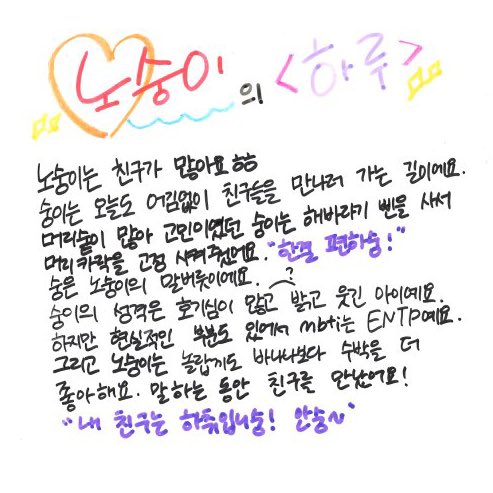 노숭이의 <하루>
노숭이는 친구가 많아요ㅎㅎ
숭이는 오늘도 어김없이 친구들을 만나러 가는 길이에요.
머리숱이 많아 고민이였던 숭이는 해바라기 삔을 사서
머리카락을 고정 시켜주었어요. "한결 편하숭!"
숭은 노숭이의 말버릇이에요.
숭이의 성격은 호기심이 많고 밝고 웃긴 아이예요.
하지만 현실적인 부분도 있어서 mbti는 ENTP예요.
그리고 노숭이는 놀랍게도 바나나보다 수박을 더
좋아해요. 말하는 동안 친구를 만났어요!
"내 친구는 하쥐입니숭! 안숭~"